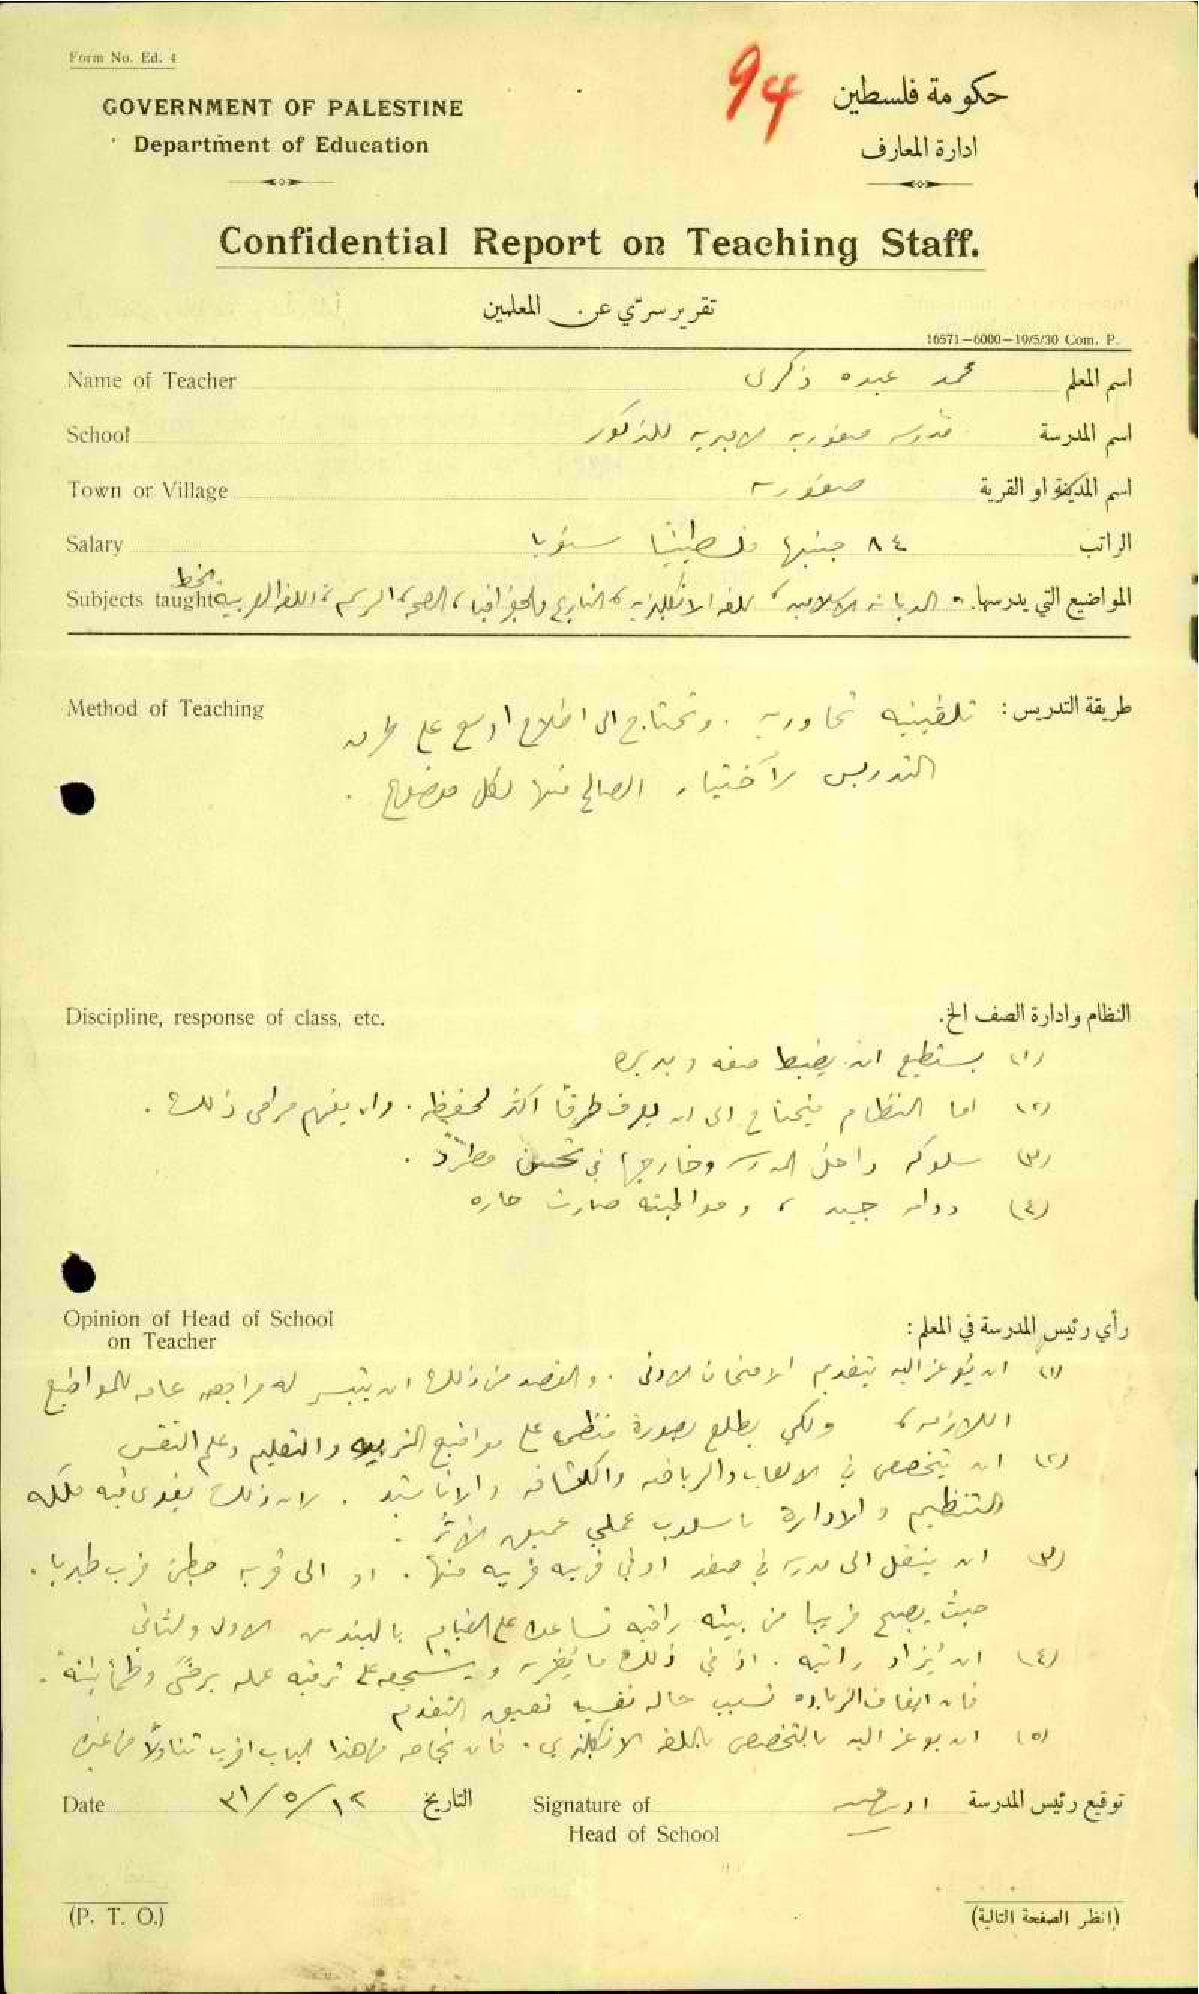 Form No. Ed. 4
94
GOVERNMENT OF PALESTINE
حكومة فلسطين
Department of Education
ادارة المعارف
Confidential Report on Teaching Staff.
تقرير سرّي عن المعلمين
16571—6000—19/5/30 Com. P.
Name of Teacher محمد عبده ذكرى اسم المعلم
School مدرسة صفورية الاميرية للذكور اسم المدرسة
Town or Village صفورية اسم المدينة او القرية
Salary ٨٤ جنيها فلسطينيا سنويا الراتب
الخط
Subjects taught المواضيع التي يدرسها. الديانة الاسلامية، اللغة الانكليزية، التاريخ والجغرافيا، الصحة، الرسم، اللغة العربية
Method of Teaching طريقة التدريس: تلقينية تحاورية. وتحتاج الى اطلاع اوسع على طرق
التدريس لاختيار الصالح منها لكل موضوع.
Discipline, response of class, etc. النظام وادارة الصف الخ.
(١) يستطيع ان يضبط صفه ويديره
(٢) اما النظام فيحتاج الى ان يعرف طرقاً اكثر لحفظه. وان يفهم مرامي ذلك.
(٣) سلوكه داخل المدرسة وخارجها في تحسن مطرد.
(٤) دوامه جيد، ومواظبته صارت حارة
Opinion of Head of School
on Teacher
رأي رئيس المدرسة في المعلم:
(١) ان يُوعز اليه بتقديم الامتحان الادنى. والقصد من ذلك ان يتيسر له مراجعة عامة للمواضيع
اللازمة، ولكي يطلع بصورة منظمة على مواضيع التربية والتعليم وعلم النفس
(٢) ان يتخصص في الالعاب والرياضة والكشافة والاناشيد. لان ذلك يقوى فيه ملكة
التنظيم والادارة باسلوب عملي عميق الاثر.
(٣) ان ينقل الى مدرسة في صفد او في قرية قريبة منها. او الى قرية حطين قرب طبريا.
حيث يصبح قريبا من بيئة راقية تساعده على القيام بالبندين الاول والثاني
(٤) ان يُزاد راتبه. اذ في ذلك ما يغريه ويشجعه على ترقية عمله برضىً وطمأنينة.
فان ايقاف الزيادة تسبب حالة نفسية تعيق التقدم
(٥) ان يوعز اليه بالتخصص باللغة الانكليزية. فان نجاحه من هذا الباب اقرب تناولاً من غيره
Date ١٢/٥/٣١ التاريخ
Signature of
Head of School
توقيع رئيس المدرسة
(P. T. O.)
(انظر الصفحة التالية)